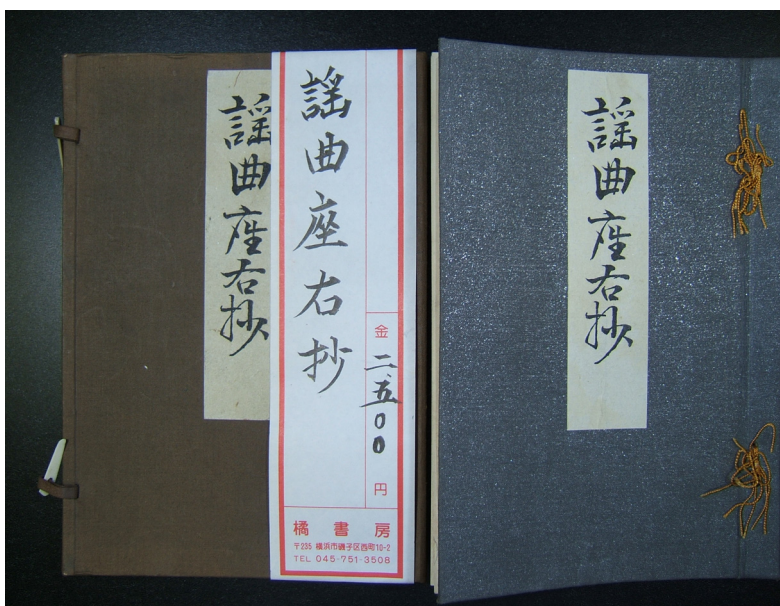 謡曲座右抄
謡曲座右抄
金 二、五00 円
橘書房
〒235 横浜市磯子区西町10-2
TEL 045-751-3508
謡曲座右抄